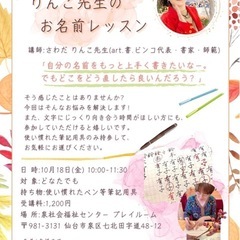 りんご先生の
お名前レッスン
講師:さわだ りんご先生(art.書 ビンゴ代表・書家・師範)
「自分の名前をもっと上手く書きたいな~。
でもどこをどう直したら良いんだろう?」
そう感じたことはありませんか?
今回はそんなお悩みを解決します!
また、文字にじっくり向き合う時間がほしい方にも、
参加していただけると嬉しいです。
使い慣れた筆記用具のみ持参して、
お気軽にお越しください。
日 時:10月18日(金) 10:00-11:30
対 象:どなたでも
持ち物:使い慣れたペン等筆記用具
受講料:1,200円
場 所:泉社会福祉センター プレイルーム
〒981-3131 仙台市泉区七北田字道48-12